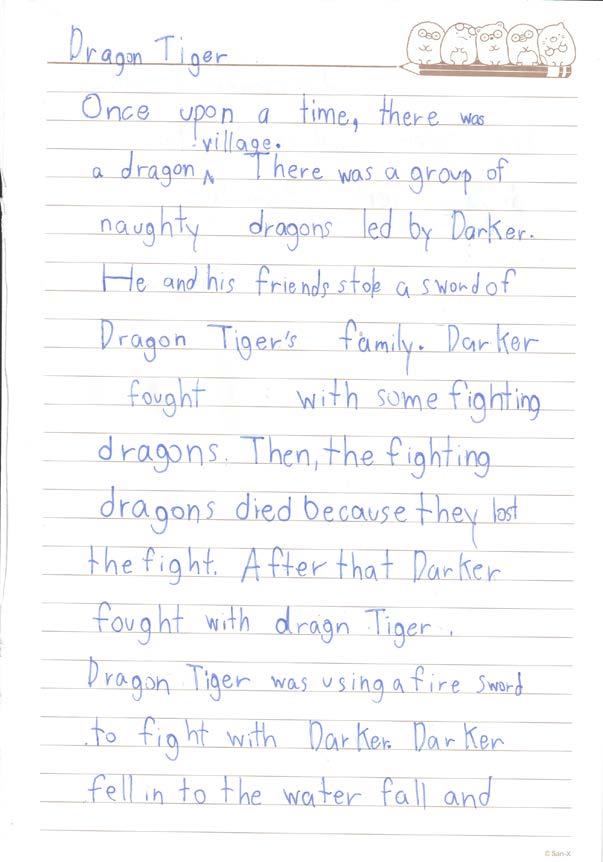 Dragon Tiger
Once upon a time, there was
village.
a dragon ^ There was a group of
naughty dragons led by Darker.
He and his friends stole a sword of
Dragon Tiger's family. Darker
fought with some fighting
dragons. Then, the fighting
dragons died because they lost
the fight. After that Darker
fought with dragn Tiger.
Dragon Tiger was using a fire sword
to fight with Darker. Darker
fell in to the water fall and
© San-X